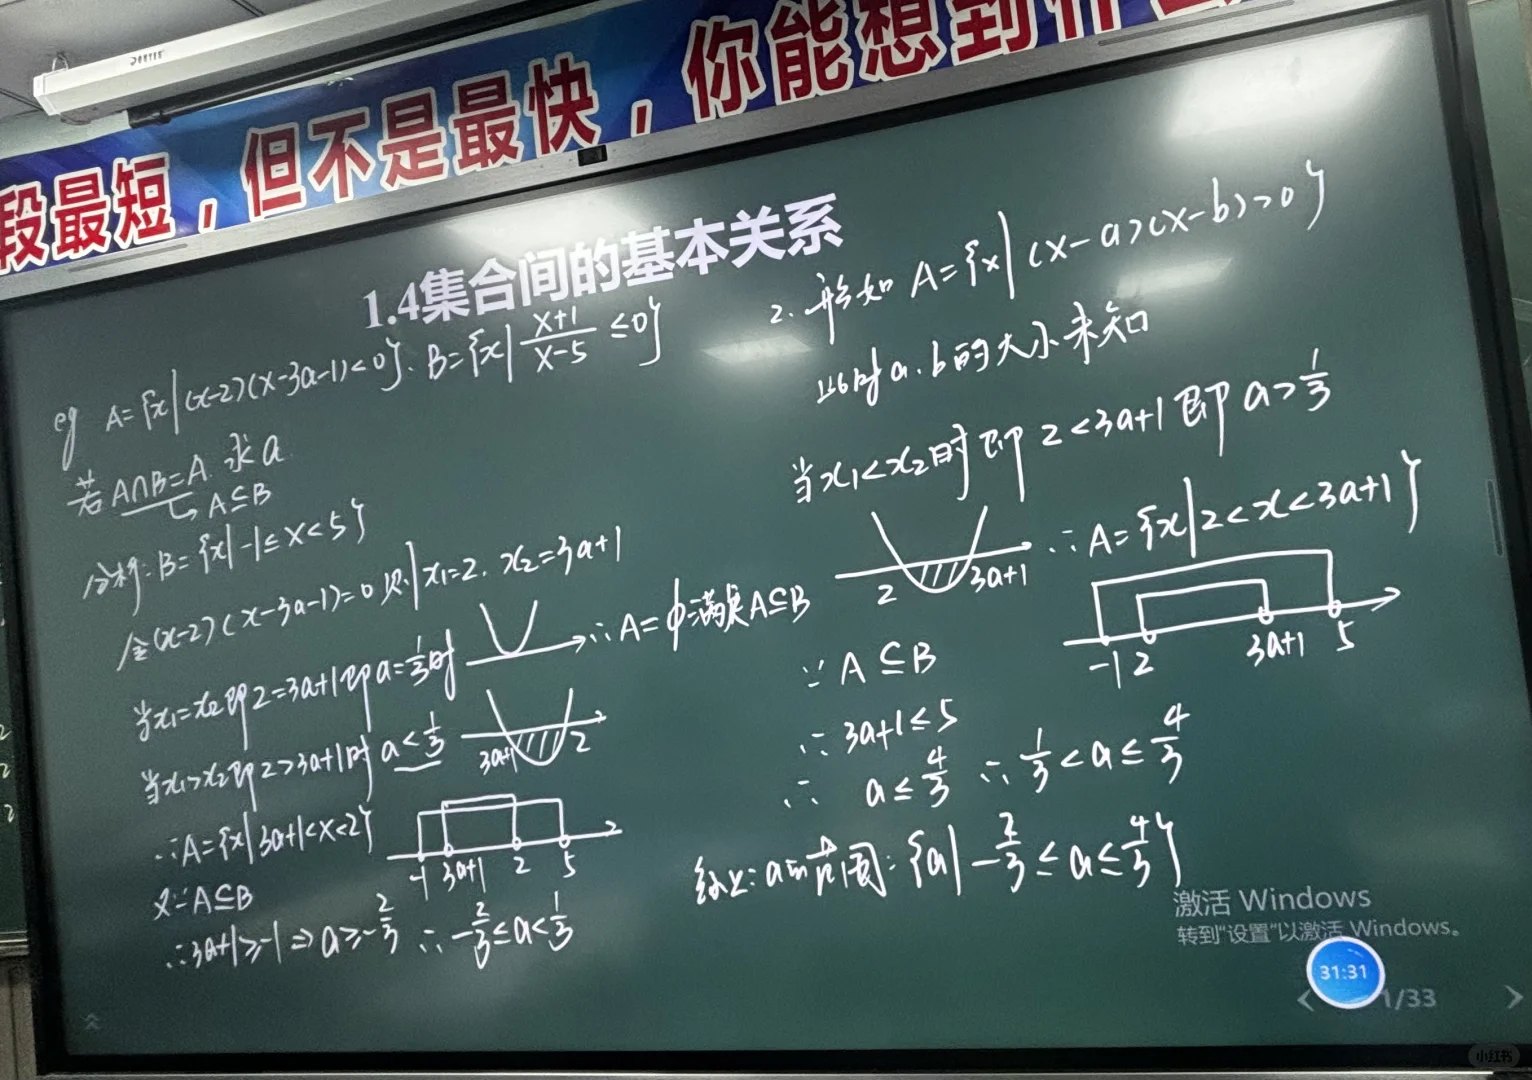 段最短，但不是最快，你能想到什么
1.4集合间的基本关系
eg A={x|(x-2)(x-3a-1)<0}. B={x|\frac{x+1}{x-5}≤0}
若A∩B=A. 求a
↳A⊆B
分析: B={x|-1≤x<5}
令(x-2)(x-3a-1)=0 则 x₁=2. x₂=3a+1
当x₁=x₂即2=3a+1即a=\frac{1}{3}时 ∴A=φ满足A⊆B
当x₁>x₂即2>3a+1时 a<\frac{1}{3}
3a+1 2
∴A={x|3a+1<x<2}
-1 3a+1 2 5
又∵A⊆B
∴3a+1≥-1⇒a≥-\frac{2}{3} ∴-\frac{2}{3}≤a<\frac{1}{3}
2. 形如 A={x|(x-a)(x-b)>0}
此时a.b的大小未知
当x₁<x₂时 即 2<3a+1 即 a>\frac{1}{3}
2 3a+1
∴A={x|2<x<3a+1}
-1 2 3a+1 5
∵A⊆B
∴3a+1≤5
∴ a≤\frac{4}{3} ∴\frac{1}{3}<a≤\frac{4}{3}
综上: a的范围: {a|-\frac{2}{3}≤a≤\frac{4}{3}}
激活 Windows
转到"设置"以激活 Windows。
31:31
1/33
小红书